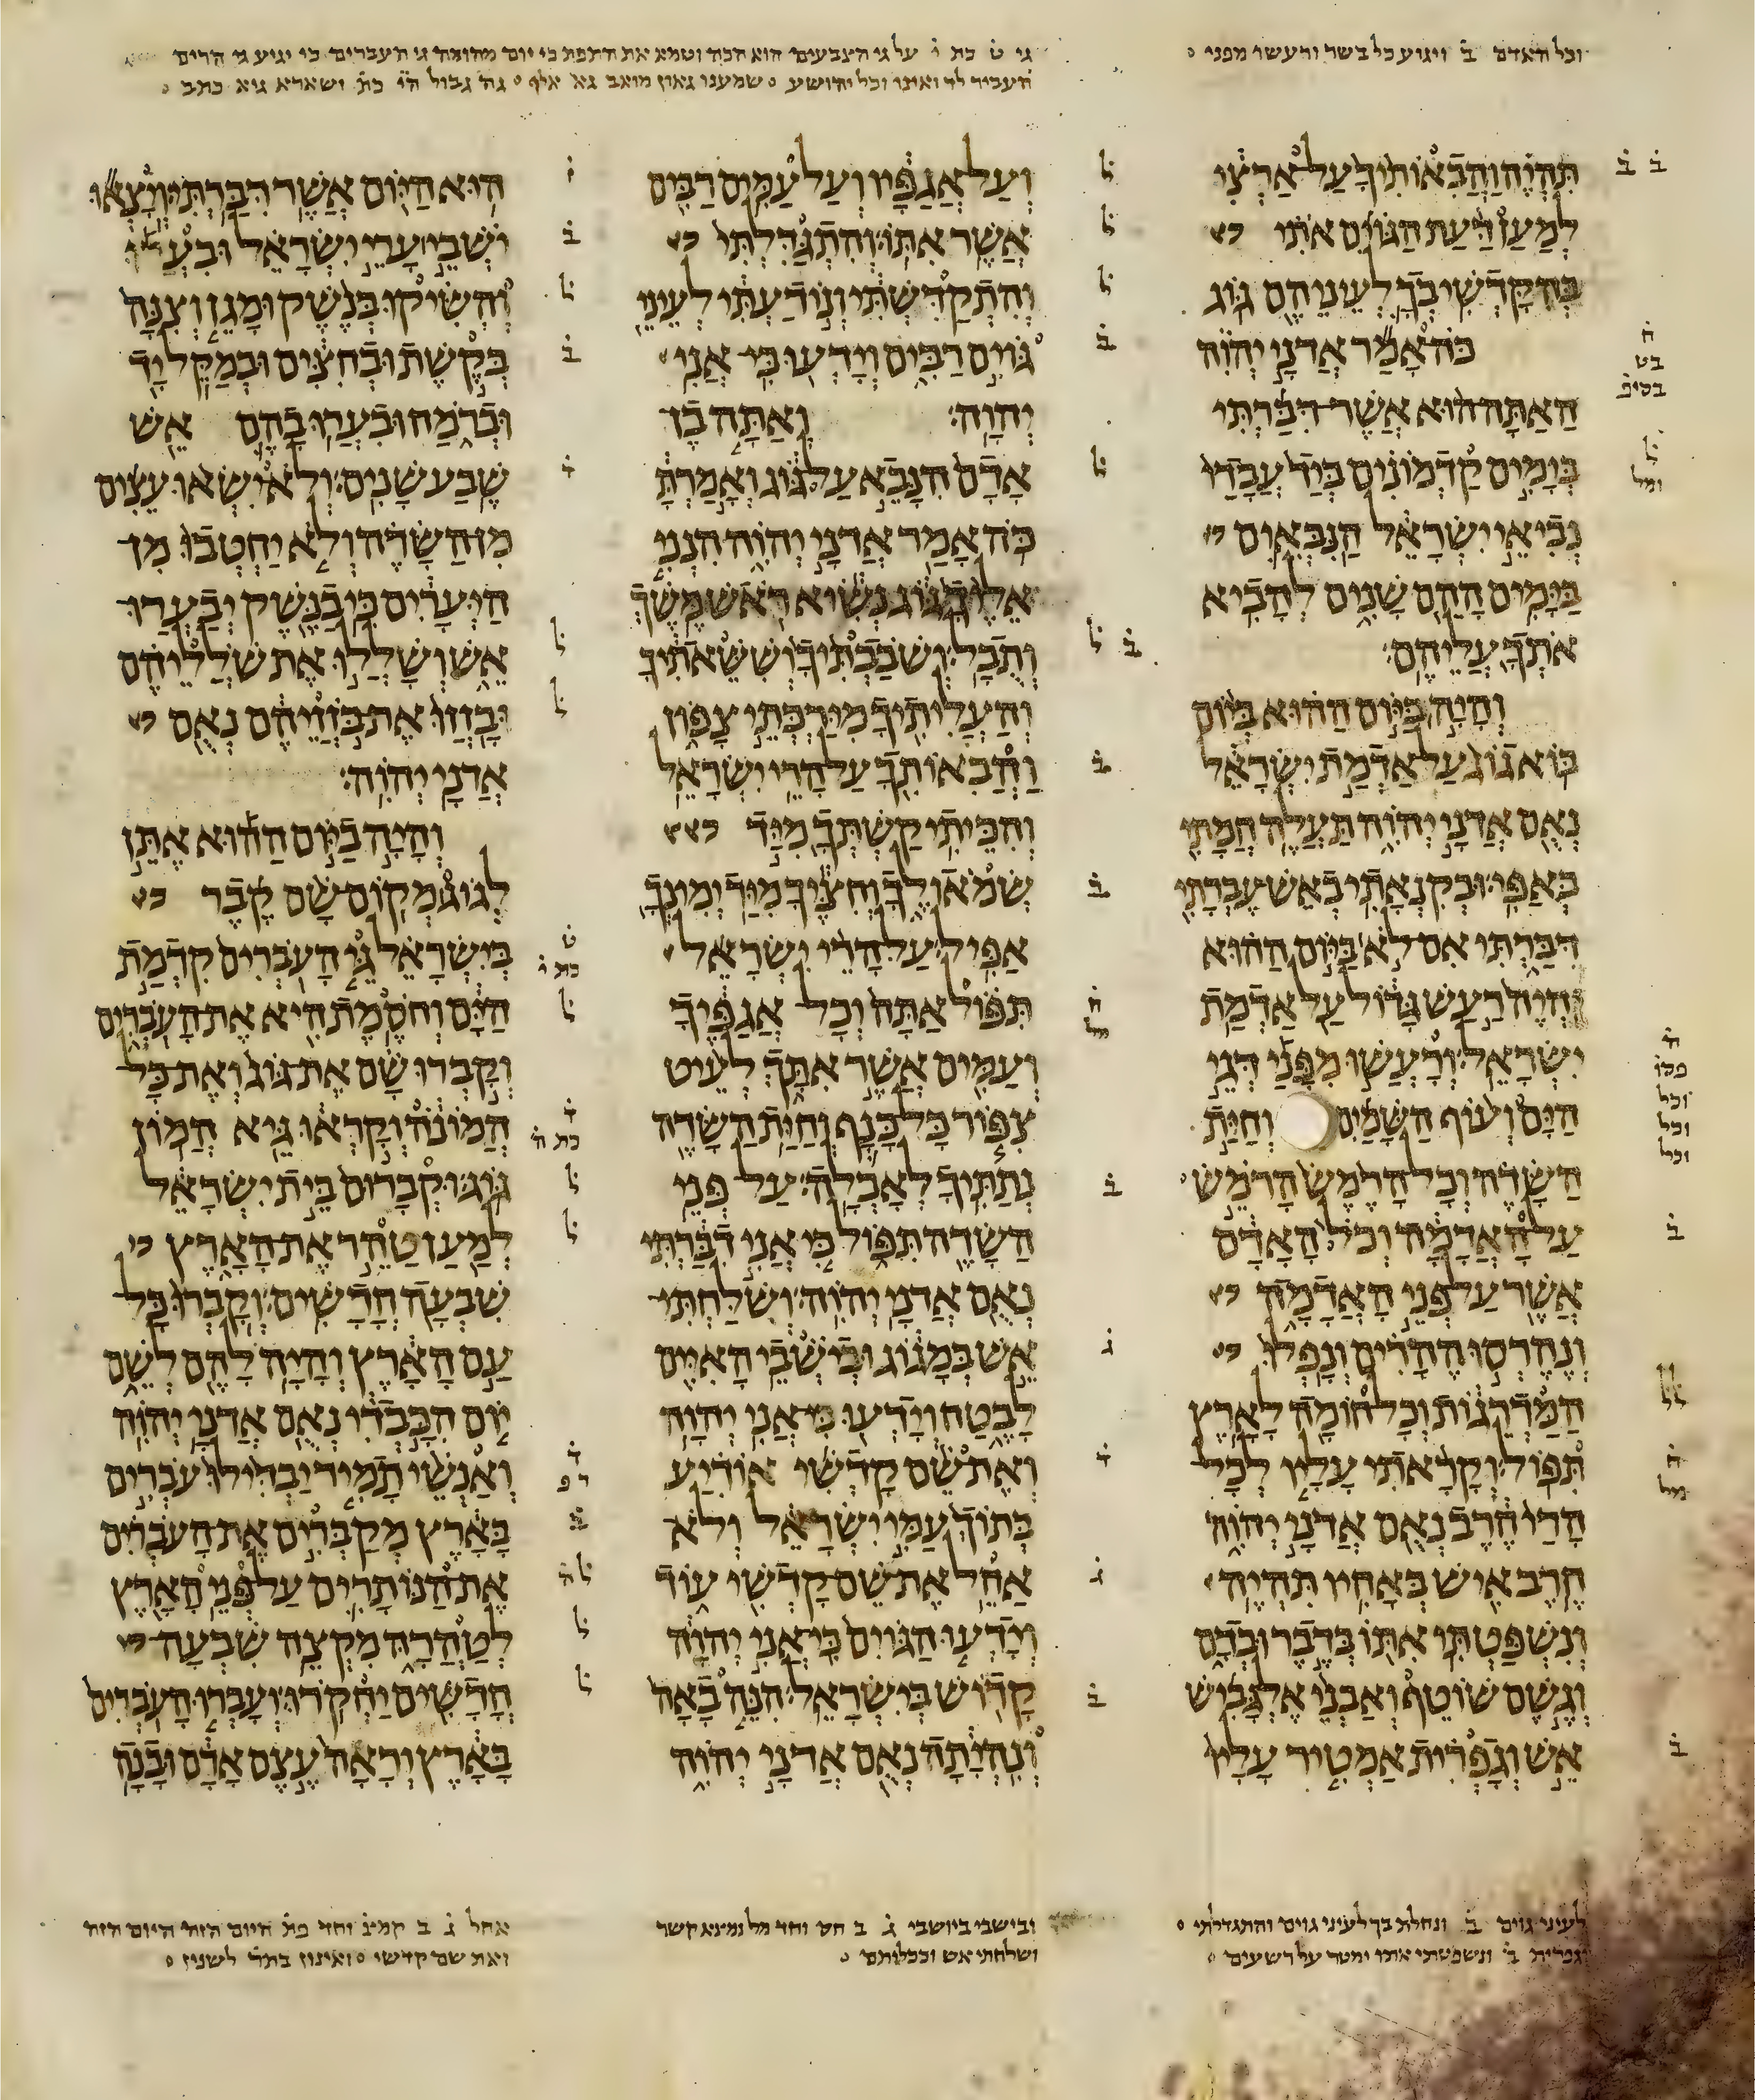 וכל האדם ב̇ ויגוע כל בשר ורעשו מפני ○
גי ט̇ כת י̇ על גי הצבעים הוא הכה וטמא את התפת כי יום מהומה גי העברים כי יגיע גי הרים
העביר לד ואיתו וכל יהושע ○ שמענו גאון מואב גא אלף ○ גה גבול הי̇ כת̇ ושארא גיא כתב ○
תִּהְיֶה וַהֲבִאוֹתִיךָ עַל אַרְצִי
לְמַעַן דַּעַת הַגּוֹיִם אֹתִי
בְּהִקָּדְשִׁי בְךָ לְעֵינֵיהֶם גּוֹג
כֹּה אָמַר אֲדֹנָי יְהוִה
הַאַתָּה הוּא אֲשֶׁר דִּבַּרְתִּי
בְּיָמִים קַדְמוֹנִים בְּיַד עֲבָדַי
נְבִיאֵי יִשְׂרָאֵל הַנִּבְּאִים
בַּיָּמִים הָהֵם שָׁנִים לְהָבִיא
אֹתְךָ עֲלֵיהֶם׃
וְהָיָה בַּיּוֹם הַהוּא בְּיוֹם
בּוֹא גוֹג עַל אַדְמַת יִשְׂרָאֵל
נְאֻם אֲדֹנָי יְהוִה תַּעֲלֶה חֲמָתִי
בְּאַפִּי׃ וּבְקִנְאָתִי בְאֵשׁ עֶבְרָתִי
דִּבַּרְתִּי אִם לֹא בַּיּוֹם הַהוּא
יִהְיֶה רַעַשׁ גָּדוֹל עַל אַדְמַת
יִשְׂרָאֵל׃ וְרָעֲשׁוּ מִפָּנַי דְּגֵי
הַיָּם וְעוֹף הַשָּׁמַיִם וְחַיַּת
הַשָּׂדֶה וְכָל הָרֶמֶשׂ הָרֹמֵשׂ
עַל הָאֲדָמָה וְכֹל הָאָדָם
אֲשֶׁר עַל פְּנֵי הָאֲדָמָה
וְנֶהֶרְסוּ הֶהָרִים וְנָפְלוּ
הַמַּדְרֵגוֹת וְכָל חוֹמָה לָאָרֶץ
תִּפּוֹל׃ וְקָרָאתִי עָלָיו לְכָל
הָרַי חֶרֶב נְאֻם אֲדֹנָי יְהוִה
חֶרֶב אִישׁ בְּאָחִיו תִּהְיֶה׃
וְנִשְׁפַּטְתִּי אִתּוֹ בְּדֶבֶר וּבְדָם
וְגֶשֶׁם שׁוֹטֵף וְאַבְנֵי אֶלְגָּבִישׁ
אֵשׁ וְגָפְרִית אַמְטִיר עָלָיו
וְעַל אֲגַפָּיו וְעַל עַמִּים רַבִּים
אֲשֶׁר אִתּוֹ׃ וְהִתְגַּדִּלְתִּי
וְהִתְקַדִּשְׁתִּי וְנוֹדַעְתִּי לְעֵינֵי
גּוֹיִם רַבִּים וְיָדְעוּ כִּי אֲנִי
יְהוָה׃ וְאַתָּה בֶן
אָדָם הִנָּבֵא עַל גּוֹג וְאָמַרְתָּ
כֹּה אָמַר אֲדֹנָי יְהוִה הִנְנִי
אֵלֶיךָ גּוֹג נְשִׂיא רֹאשׁ מֶשֶׁךְ
וְתֻבָל׃ וְשֹׁבַבְתִּיךָ וְשִׁשֵּׁאתִיךָ
וְהַעֲלִיתִיךָ מִיַּרְכְּתֵי צָפוֹן
וַהֲבִאוֹתִךָ עַל הָרֵי יִשְׂרָאֵל
וְהִכֵּיתִי קַשְׁתְּךָ מִיַּד
שְׂמֹאולֶךָ וְחִצֶּיךָ מִיַּד יְמִינְךָ
אַפִּיל׃ עַל הָרֵי יִשְׂרָאֵל
תִּפּוֹל אַתָּה וְכָל אֲגַפֶּיךָ
וְעַמִּים אֲשֶׁר אִתָּךְ לְעֵיט
צִפּוֹר כָּל כָּנָף וְחַיַּת הַשָּׂדֶה
נְתַתִּיךָ לְאָכְלָה׃ עַל פְּנֵי
הַשָּׂדֶה תִּפּוֹל כִּי אֲנִי דִבַּרְתִּי
נְאֻם אֲדֹנָי יְהוִה׃ וְשִׁלַּחְתִּי
אֵשׁ בְּמָגוֹג וּבְיֹשְׁבֵי הָאִיִּים
לָבֶטַח וְיָדְעוּ כִּי אֲנִי יְהוָה
וְאֶת שֵׁם קָדְשִׁי אוֹדִיעַ
בְּתוֹךְ עַמִּי יִשְׂרָאֵל וְלֹא
אַחֵל אֶת שֵׁם קָדְשִׁי עוֹד
וְיָדְעוּ הַגּוֹיִם כִּי אֲנִי יְהוָה
קָדוֹשׁ בְּיִשְׂרָאֵל׃ הִנֵּה בָאָה
וְנִהְיָתָה נְאֻם אֲדֹנָי יְהוִה
הוּא הַיּוֹם אֲשֶׁר דִּבַּרְתִּי׃ וְיָצְאוּ
יֹשְׁבֵי עָרֵי יִשְׂרָאֵל וּבִעֲרוּ
וְהִשִּׂיקוּ בְּנֶשֶׁק וּמָגֵן וְצִנָּה
בְּקֶשֶׁת וּבְחִצִּים וּבְמַקֵּל יָד
וּבְרֹמַח וּבִעֲרוּ בָהֶם אֵשׁ
שֶׁבַע שָׁנִים׃ וְלֹא יִשְׂאוּ עֵצִים
מִן הַשָּׂדֶה וְלֹא יַחְטְבוּ מִן
הַיְּעָרִים כִּי בַנֶּשֶׁק יְבַעֲרוּ
אֵשׁ וְשָׁלְלוּ אֶת שֹׁלְלֵיהֶם
וּבָזְזוּ אֶת בֹּזְזֵיהֶם נְאֻם
אֲדֹנָי יְהוִה׃
וְהָיָה בַיּוֹם הַהוּא אֶתֵּן
לְגוֹג מְקוֹם שָׁם קֶבֶר
בְּיִשְׂרָאֵל גֵּי הָעֹבְרִים קִדְמַת
הַיָּם וְחֹסֶמֶת הִיא אֶת הָעֹבְרִים
וְקָבְרוּ שָׁם אֶת גּוֹג וְאֶת כָּל
הֲמוֹנֹה וְקָרְאוּ גֵּיא הֲמוֹן
גּוֹג׃ וּקְבָרוּם בֵּית יִשְׂרָאֵל
לְמַעַן טַהֵר אֶת הָאָרֶץ
שִׁבְעָה חֳדָשִׁים׃ וְקָבְרוּ כָּל
עַם הָאָרֶץ וְהָיָה לָהֶם לְשֵׁם
יוֹם הִכָּבְדִי נְאֻם אֲדֹנָי יְהוִה
וְאַנְשֵׁי תָמִיד יַבְדִּילוּ עֹבְרִים
בָּאָרֶץ מְקַבְּרִים אֶת הָעֹבְרִים
אֶת הַנּוֹתָרִים עַל פְּנֵי הָאָרֶץ
לְטַהֲרָהּ מִקְצֵה שִׁבְעָה
חֳדָשִׁים יַחְקֹרוּ׃ וְעָבְרוּ הָעֹבְרִים
בָּאָרֶץ וְרָאָה עֶצֶם אָדָם וּבָנָה
לעיני גוים ב̇ ונחלת בך לעיני גוים והתגדלתי ○
וגפרית ב̇ ונשפטתי אתו ימטר על רשעים ○
ובישבי ביושבי ג̇ ב חס וחד מל
ושלחתי אש וככלותם ○
אחל ג̇ ב קמיצ̇ וחד פת̇ היום הזה היום הזה
ואת שם קדשי ○ ואינון בתר̇ לשניז ○